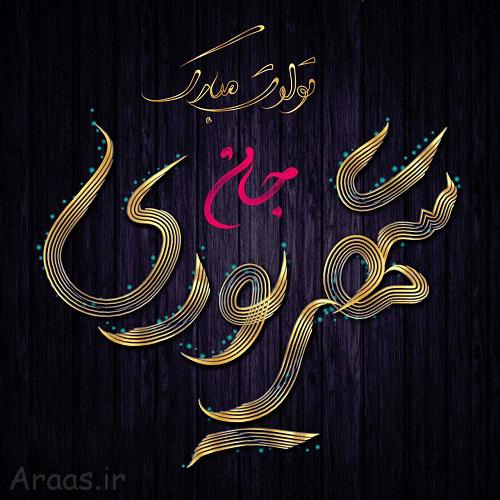 تولدت مبارک
جان
شهریوری
Araas.ir